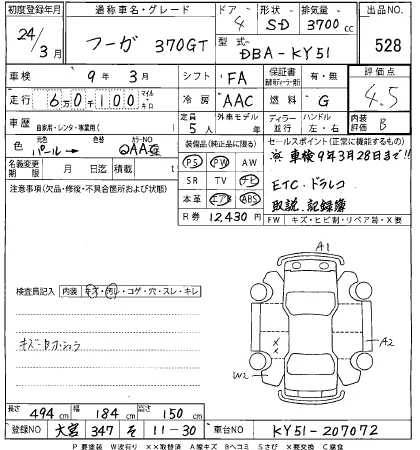 初度登録年月 通称車名・グレード ドア 形状 排気量 出品NO
24/3月 フーガ 370GT 4 SD 3700cc 528
型式 DBA-KY51
車検 9年3月 シフト FA 保証書 有・無 評価点
走行 6万0千100 マイル キロ 冷房 AAC 燃料 G 4.5
車歴 自家用・レンタ・事業用( ) 定員 5人 外車モデル 年 ディーラー 並行 ハンドル 左・右 内装評価 B
色 元色 パール→ 色替 カラーNO QAA 装備品(純正品に限る) セールスポイント(正常に機能するもの)
名義変更期限 月 日迄 積載 t PS PW AW ※車検9年3月28日まで!!
注意事項(欠品・修復・不具合箇所および状態) SR TV ナビ ETC ドラレコ
本革 エアB ABS 取説、記録簿
R券 12,430円 FW キズ・ヒビ割・リペア跡・X要
A1
検査員記入 内装 キズ・汚レ・コゲ・穴・スレ・キレ
A2
W2
長さ 494cm 幅 184cm 高さ 150cm
登録NO 大宮 347 そ 11-30 車台NO KY51-207072
P要塗装 W波有り XX取替済 A線キズ Bヘコミ Sさび X要交換 C腐食